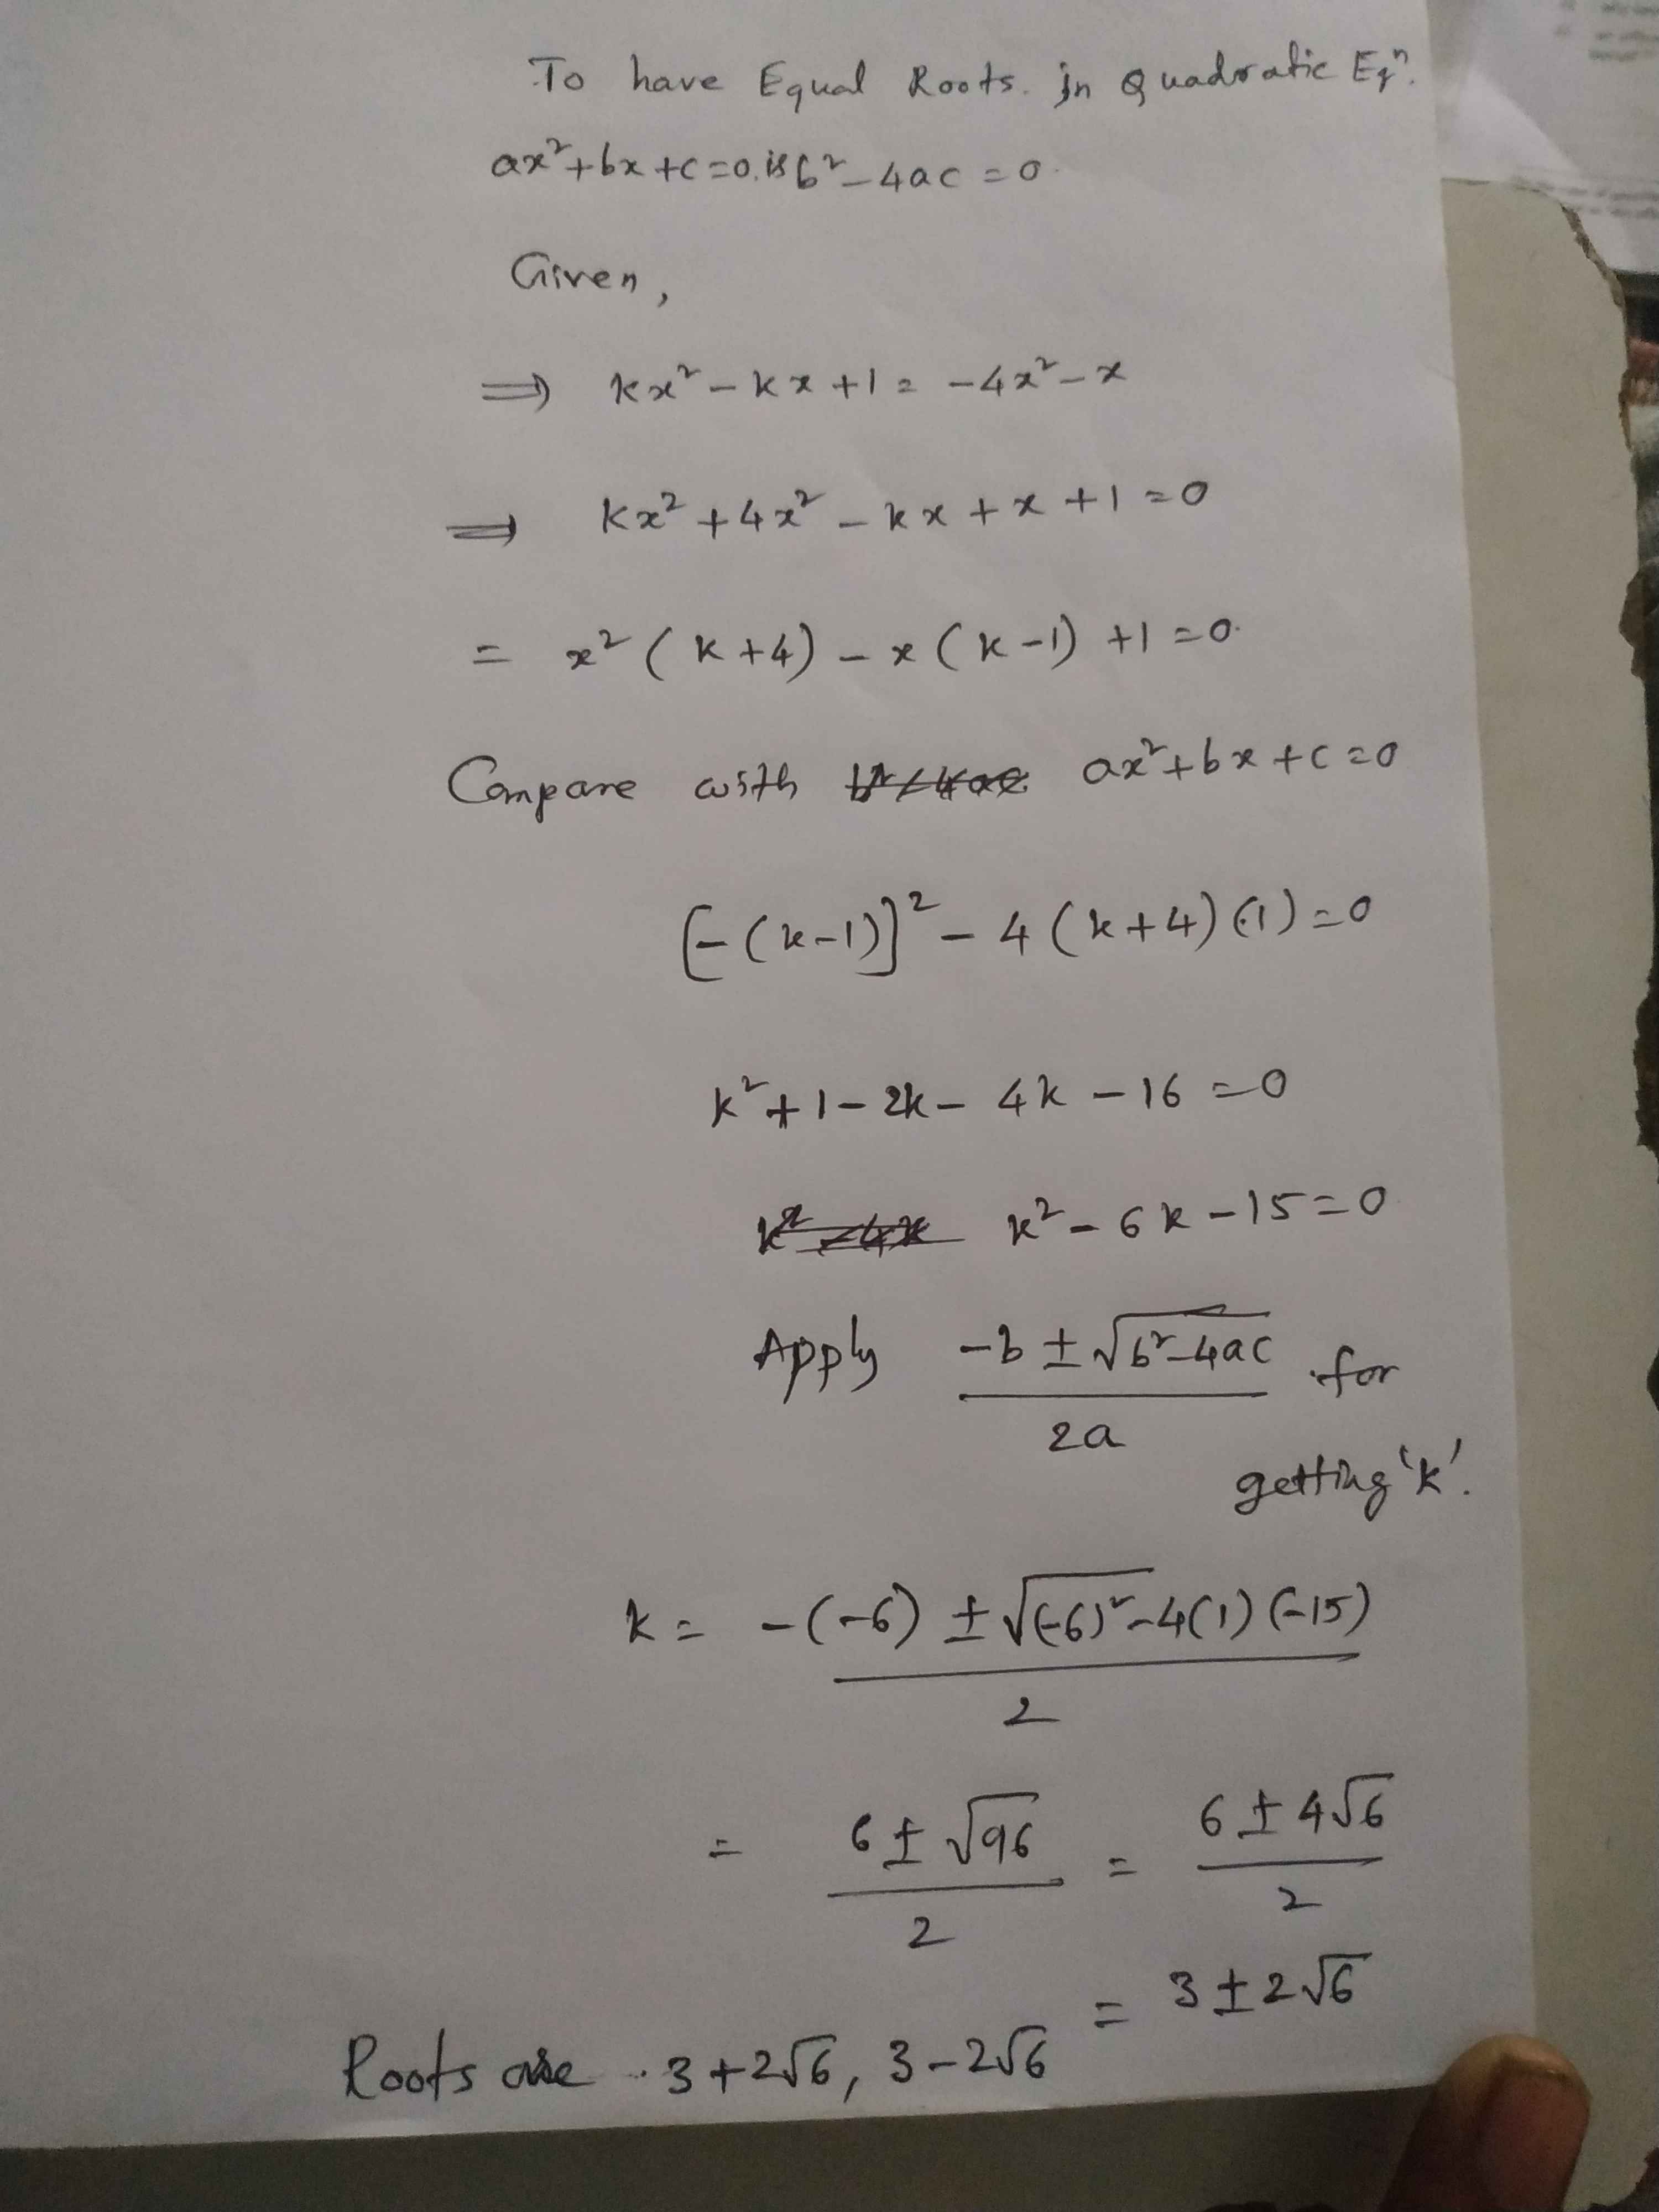 To have Equal Roots. in Quadratic Eqⁿ.
ax²+bx+c=0. is b²-4ac=0.
Given,
⇒ kx²-kx+1=-4x²-x
⇒ kx²+4x²-kx+x+1=0
= x²(k+4)-x(k-1)+1=0.
Compare with ax²+bx+c=0
[-(k-1)]²-4(k+4)(1)=0
k²+1-2k-4k-16=0
k²-6k-15=0
Apply (-b±√(b²-4ac))/2a for
getting 'k'.
k = (-(-6)±√((-6)²-4(1)(-15)))/2
= (6±√96)/2 = (6±4√6)/2
= 3±2√6
Roots are 3+2√6, 3-2√6